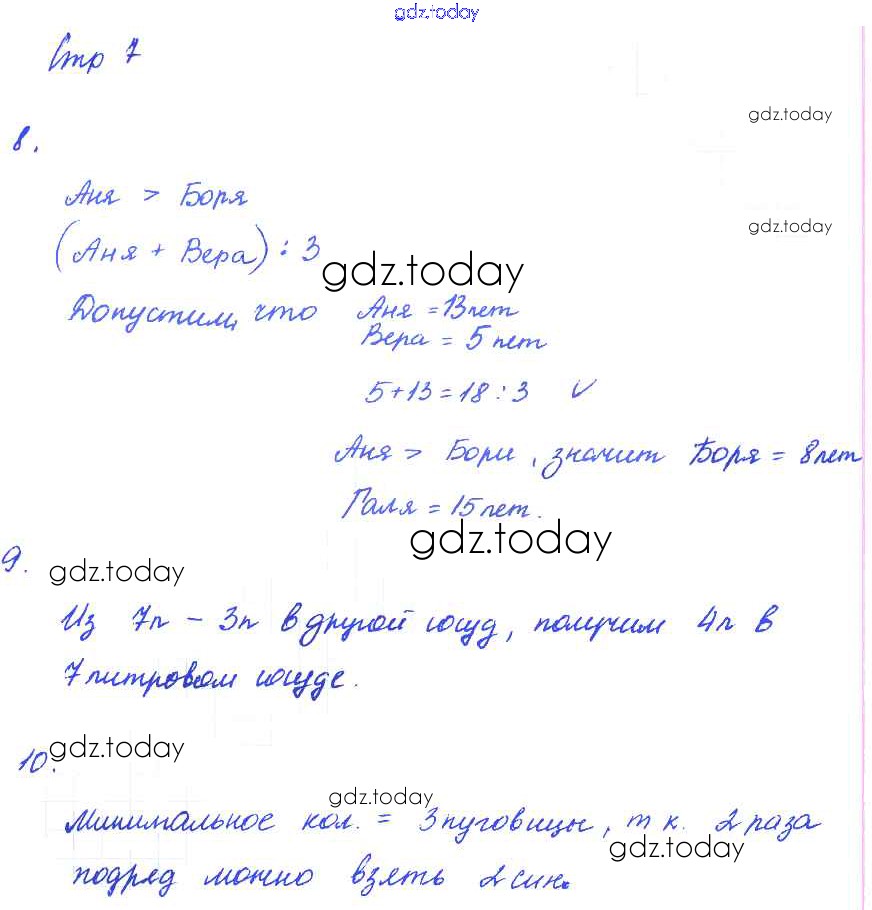 gdz.today
Стр 7
gdz.today
8.
Аня > Боря
gdz.today
(Аня + Вера) : 3
gdz.today
Допустим, что Аня = 13 лет
Вера = 5 лет
5+13=18:3 ✓
Аня > Бори, значит Боря = 8 лет
Галя = 15 лет.
gdz.today
9.
gdz.today
Из 7л - 3л в другой сосуд, получим 4л в
7 литровом сосуде.
gdz.today
10.
gdz.today
Минимальное кол. = 3 пуговицы, т к. 2 раза
gdz.today
подряд можно взять 2 син.